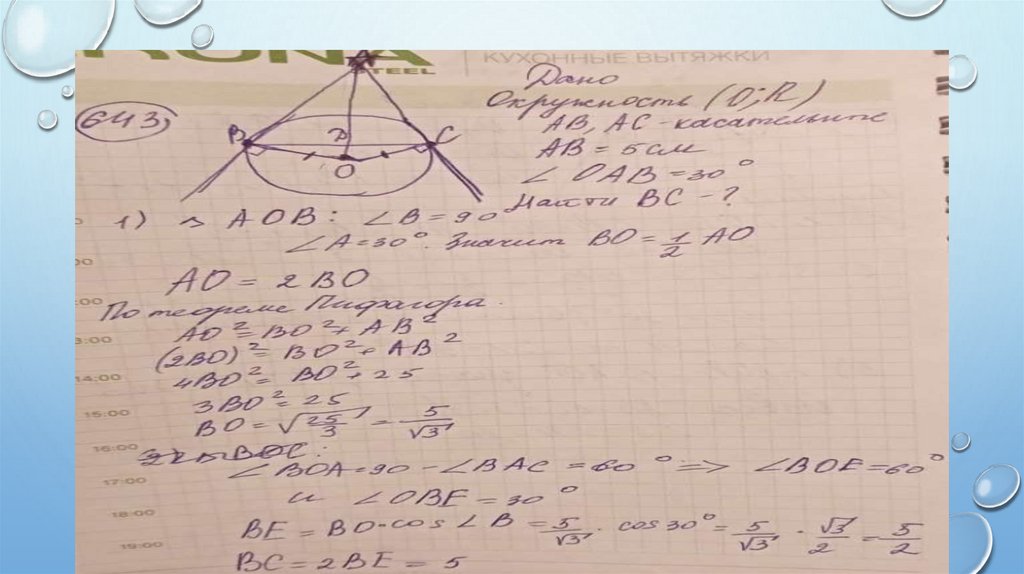 RONA
STEEL
КУХОННЫЕ ВЫТЯЖКИ
643)
A
B
D
C
O
Дано
Окружность (O; R)
AB, AC - касательные
AB = 5 см
∠ OAB = 30°
Найти BC - ?
1) △ AOB: ∠B = 90°
∠A = 30°. Значит BO = 1/2 AO
AO = 2 BO
По теореме Пифагора.
AO² = BO² + AB²
(2BO)² = BO² + AB²
4BO² = BO² + 25
3BO² = 25
BO = √25/3 = 5/√3
2) △ BOC:
∠ BOA = 90 - ∠BAC = 60° => ∠BOE = 60°
и ∠OBE = 30°
BE = BO·cos ∠B = 5/√3 · cos 30° = 5/√3 · √3/2 = 5/2
BC = 2BE = 5
14:00
15:00
16:00
17:00
18:00
19:00